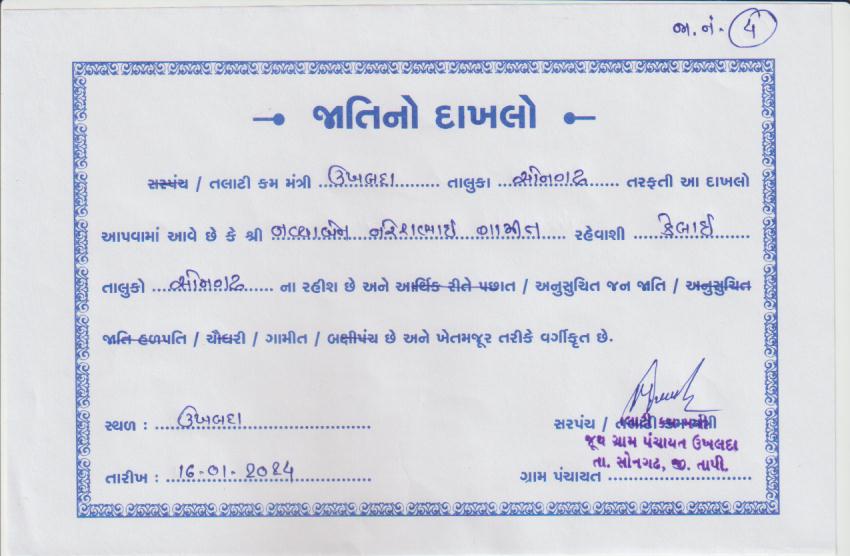 જા.નં.- 4
જાતિનો દાખલો
સરપંચ / તલાટી કમ મંત્રી ઉખલદા તાલુકા સોનગઢ તરફતી આ દાખલો
આપવામાં આવે છે કે શ્રી નરેશભાઈ ગામીત રહેવાશી કેલાઈ
તાલુકો સોનગઢ ના રહીશ છે અને આર્થિક રીતે પછાત / અનુસુચિત જન જાતિ / અનુસુચિત
જાતિ હળપતિ / ચૌધરી / ગામીત / બક્ષીપંચ છે અને ખેતમજૂર તરીકે વર્ગીકૃત છે.
સ્થળ : ઉખલદા
સરપંચ / તલાટી કમ મંત્રી
તલાટી કમ મંત્રી
જૂથ ગ્રામ પંચાયત ઉખલદા
તા. સોનગઢ, જી. તાપી.
તારીખ : 16-01-2024
ગ્રામ પંચાયત